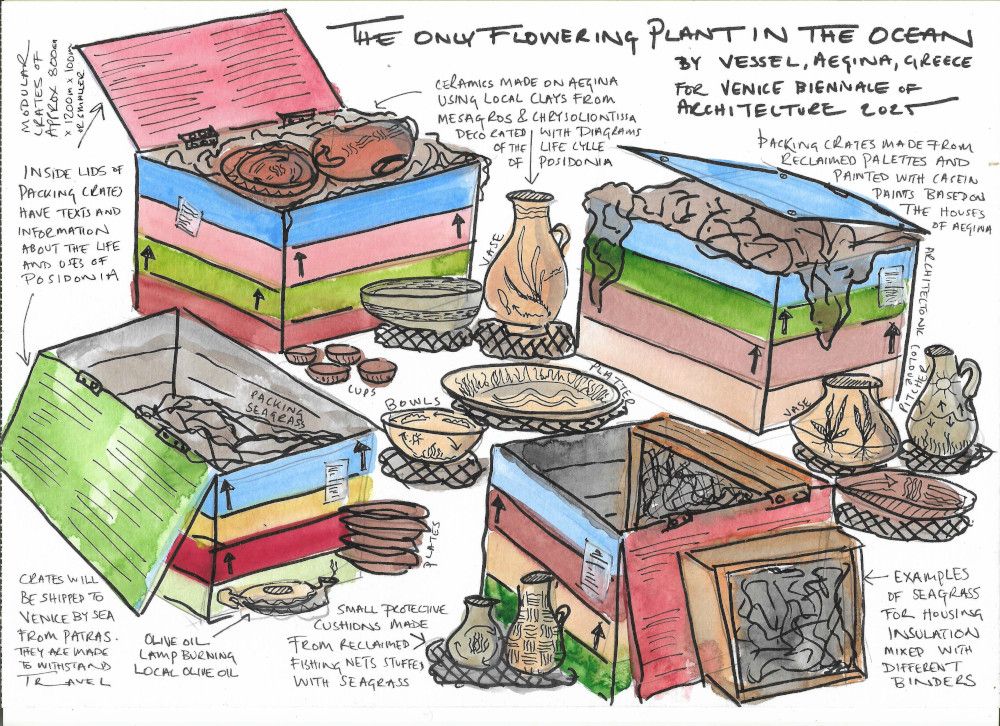 THE ONLY FLOWERING PLANT IN THE OCEAN
BY VESSEL, AEGINA, GREECE
FOR VENICE BIENNALE OF
ARCHITECTURE 2025
MODULAR
CRATES OF
APPROX 800cm
x 1200m x 100cm
OR SMALLER
CERAMICS MADE ON AEGINA
USING LOCAL CLAYS FROM
MESAGROS & CHRYSOLIONTISSA
DECORATED WITH DIAGRAMS
OF THE LIFE CYLE
OF POSIDONIA
PACKING CRATES MADE FROM
RECLAIMED PALETTES AND
PAINTED WITH CACEIN
PAINTS BASED ON
THE HOUSES
OF AEGINA
ARCHITECTONIC COLOUR
INSIDE LIDS OF
PACKING CRATES
HAVE TEXTS AND
INFORMATION
ABOUT THE LIFE
AND USES OF
POSIDONIA
VASE
CUPS
PACKING
SEAGRASS
BOWLS
PLATTER
VASE
PITCHER
PLATES
CRATES WILL
BE SHIPPED TO
VENICE BY SEA
FROM PATRAS.
THEY ARE MADE
TO WITHSTAND
TRAVEL
OLIVE OIL
LAMP BURNING
LOCAL OLIVE OIL
SMALL PROTECTIVE
CUSHIONS MADE
FROM RECLAIMED
FISHING NETS STUFFED
WITH SEAGRASS
EXAMPLES
OF SEAGRASS
FOR HOUSING
INSULATION
MIXED WITH
DIFFERENT
BINDERS